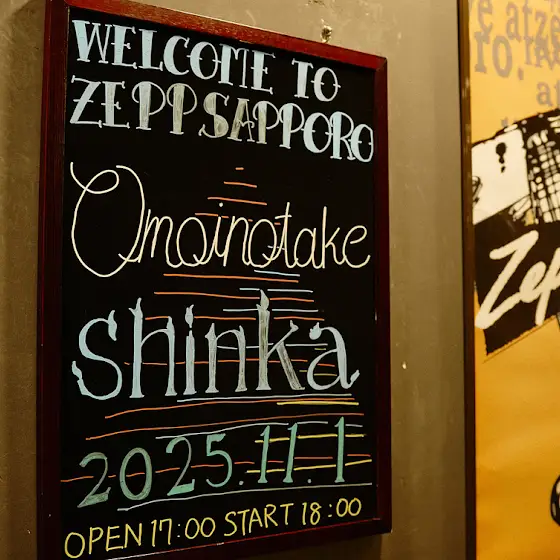 WELCOME TO
ZEPP SAPPORO
Omoinotake
Shinka
2025.11.1
OPEN 17:00 START 18:00
e atze
ro.
at
Zep